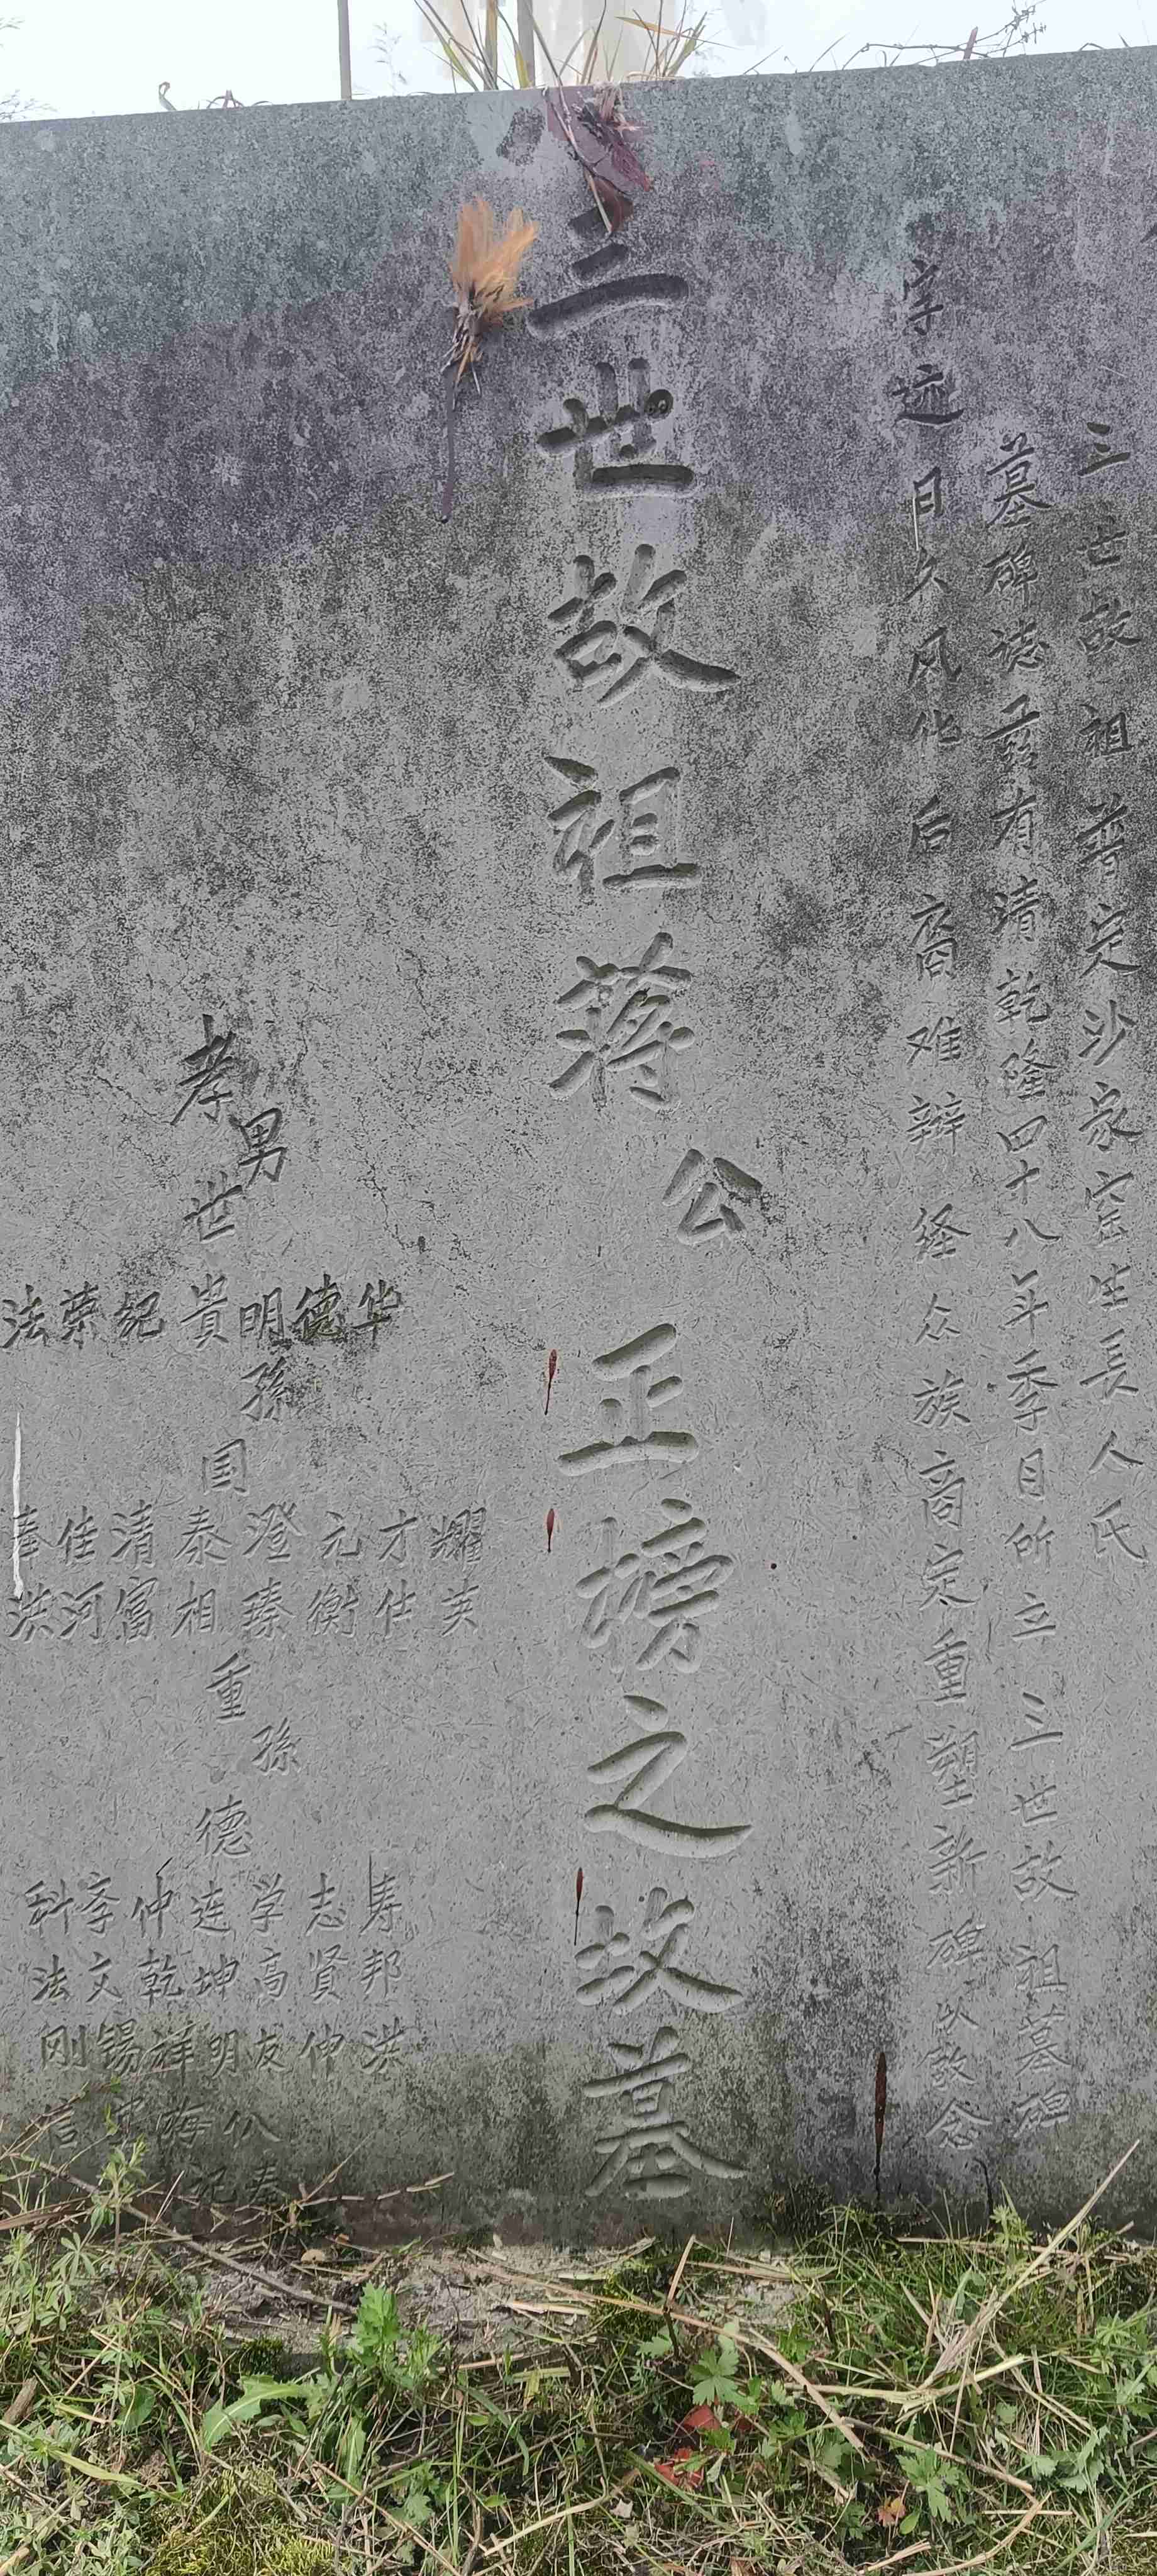 三世故祖普定沙家窑生長人氏
墓碑誌蓋有清乾隆四十八年季目所立三世故祖墓碑
字迹日久风化后裔难辩经众族商定重塑新碑以故念
三世故祖蒋公正榜之故墓
孝男
世
华德明貴纪荣法
孫
国
耀才元澄泰清佳奉
芙仕衡臻相富河洪
重孫
德
寿志学连仲孝科
邦贤高坤乾文法
洪仲友明祥锡刚